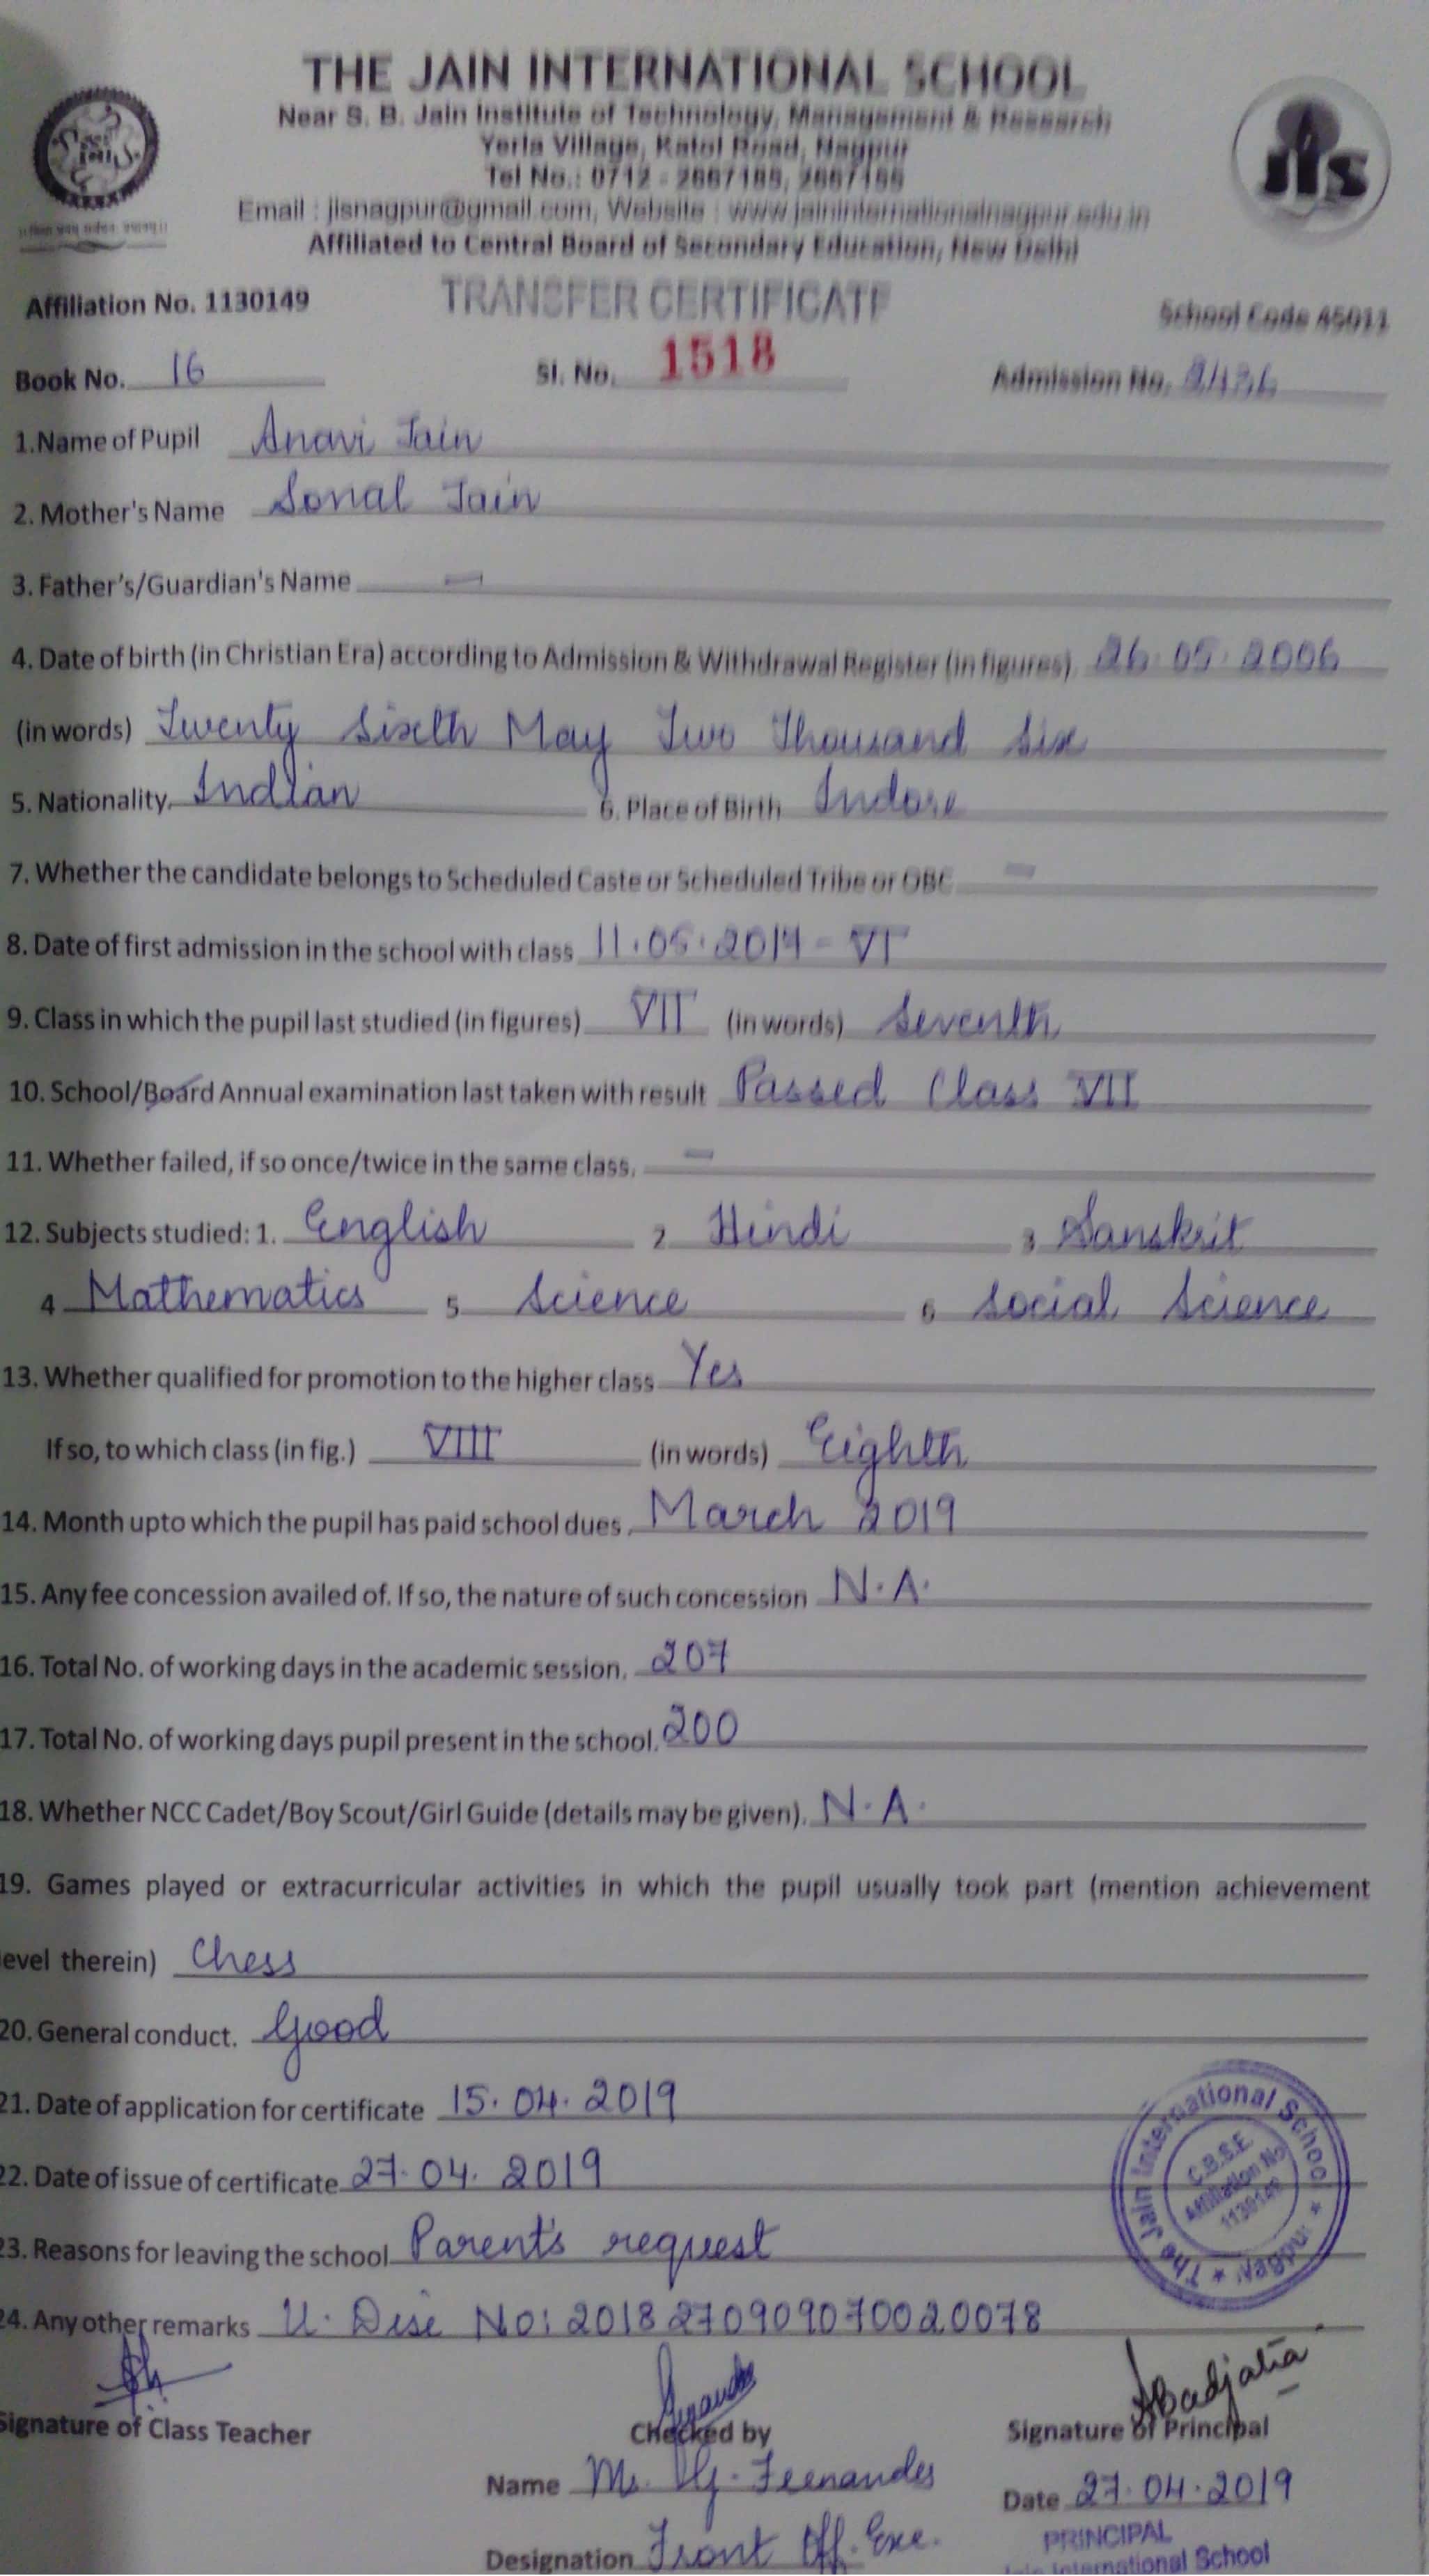 THE JAIN INTERNATIONAL SCHOOL
Near S. B. Jain Institute of Technology, Management & Research
Yerla Village, Katol Road, Nagpur
Tel No.: 0712 -
Email : jisnagpur@gmail.com, Website : www.jaininternationalnagpur.edu.in
Affiliated to Central Board of Secondary Education, New Delhi
jis
Affiliation No. 1130149 TRANSFER CERTIFICATE School Code 45011
Book No. 16 Sl. No. 1518 Admission No.
1.Name of Pupil Anavi Jain
2. Mother's Name Sonal Jain
3. Father's/Guardian's Name —
4. Date of birth (in Christian Era) according to Admission & Withdrawal Register (in figures) 26.05.2006
(in words) Twenty Sixth May Two Thousand Six
5. Nationality. Indian 6. Place of Birth Indore
7. Whether the candidate belongs to Scheduled Caste or Scheduled Tribe or OBC —
8. Date of first admission in the school with class - VI
9. Class in which the pupil last studied (in figures) VII (in words) Seventh
10. School/Board Annual examination last taken with result Passed Class VII
11. Whether failed, if so once/twice in the same class. —
12. Subjects studied: 1. English 2 Hindi 3 Sanskrit
4 Mathematics 5 Science 6 Social Science
13. Whether qualified for promotion to the higher class Yes
If so, to which class (in fig.) VIII (in words) Eighth
14. Month upto which the pupil has paid school dues. March 2019
15. Any fee concession availed of. If so, the nature of such concession N.A.
16. Total No. of working days in the academic session. 207
17. Total No. of working days pupil present in the school. 200
18. Whether NCC Cadet/Boy Scout/Girl Guide (details may be given). N.A.
19. Games played or extracurricular activities in which the pupil usually took part (mention achievement
level therein) Chess
20. General conduct. Good
21. Date of application for certificate 15.04.2019
22. Date of issue of certificate 27.04.2019
23. Reasons for leaving the school Parent's request
24. Any other remarks U. Dise No: 2018270909070020078
The Jain International School ★ Nagpur ★
C.B.S.E
Affiliation No
1130149
ABadjatia
Signature of Class Teacher Checked by Signature of Principal
Name Ms. G. Fernandes Date 27.04.2019
Designation Front Off. Exe. PRINCIPAL
Jain International School